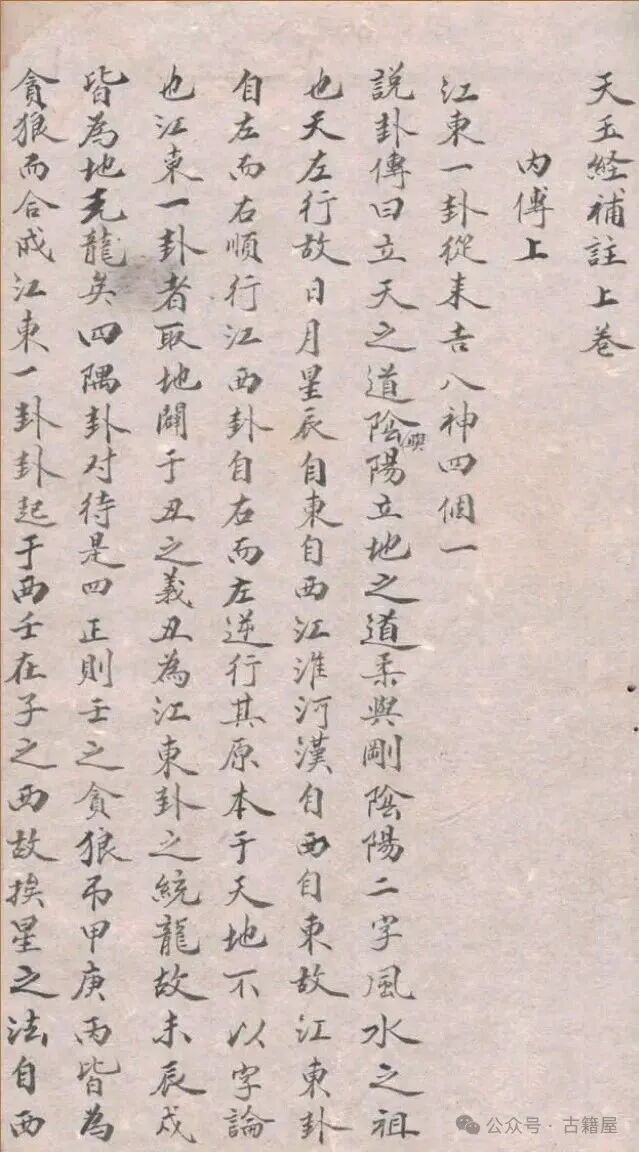 天玉経補註上巻
内傳上
江東一卦從来吉八神四個一
説卦傳曰立天之道陰與陽立地之道柔與剛陰陽二字風水之祖
也天左行故日月星辰自東自西江淮河漢自西自東故江東卦
自左而右順行江西卦自右而左逆行其原本于天地不以字論
也江東一卦者取地闢于丑之義丑為江東卦之統龍故未辰戌
皆為地元龍矣四隅卦对待是四正則壬之貪狼而甲庚丙皆為
貪狼而合成江東一卦卦起于西壬在子之西故挨星之法自西
公众号·古籍屋